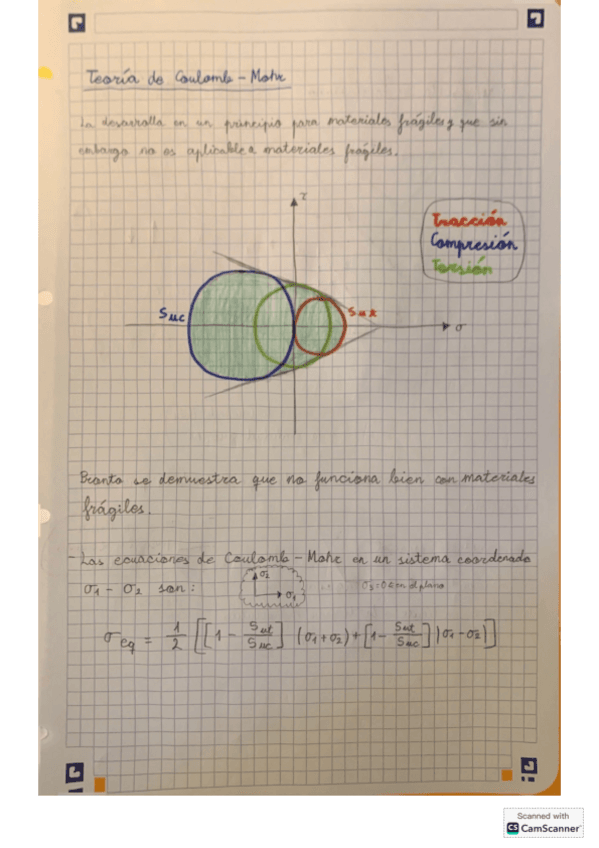 Teoría de Coulomb - Mohr
La desarrolla en un principio para materiales frágiles y que sin
embargo no es aplicable a materiales frágiles.
τ
Tracción
Compresión
Torsión
Suc
Sut
σ
Pronto se demuestra que no funciona bien con materiales
frágiles.
- Las ecuaciones de Coulomb - Mohr en un sistema coordenado
σ1 - σ2 son: σ2 σ1 σ3=0 en el plano
σeq = 1/2 [[1 - Sut/Suc] (σ1+σ2) + [1 - Sut/Suc] |σ1 - σ2|]
Scanned with
CS CamScanner